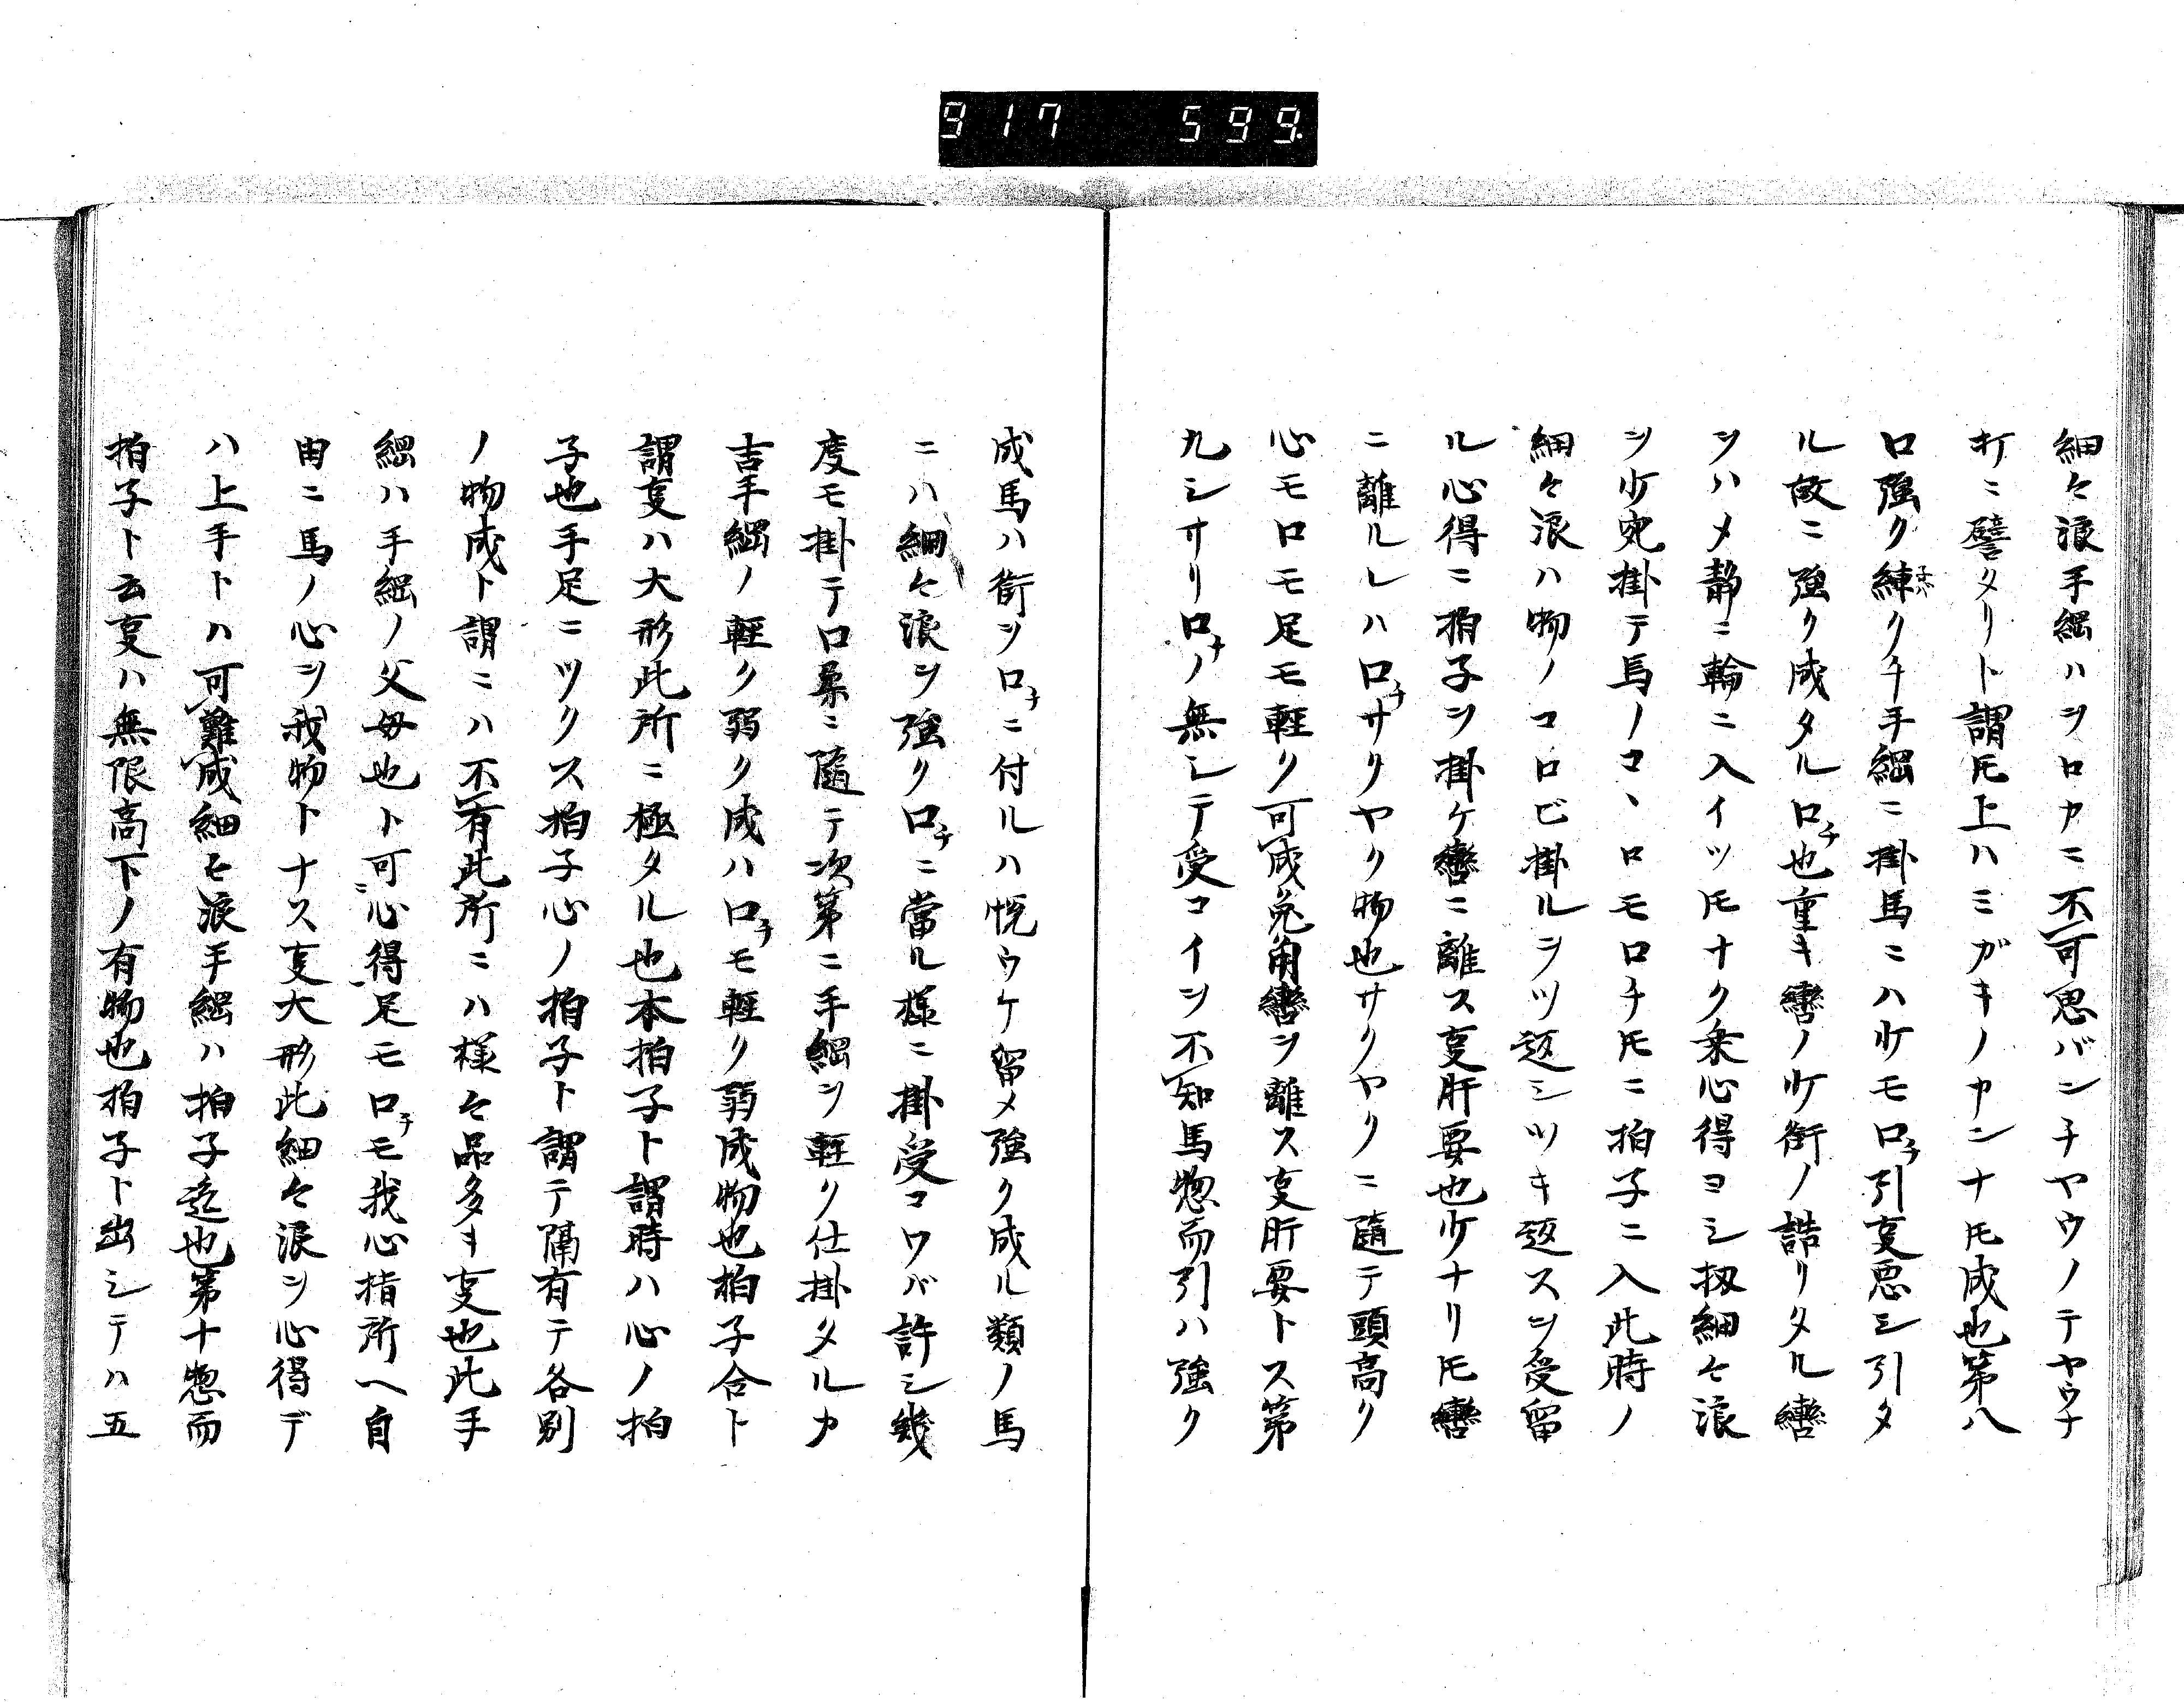 917 599.
細々浪手綱ハヲロカニ不可思バンチヤウノテヤウナ
打ニ譬タリト謂𪜈上ハミガキノカンナ𪜈成也第八
口強ク練クケ手綱ニ掛馬ニハ少モ口チ引叓悪シ引タ
ル故ニ強ク成タル口チ也重キ轡ノ少銜ノ誇リタル轡
ヲハメ静ニ輪ニ入イツ𪜈ナク乗心得ヨシ扨細々浪
ヲ少宛掛テ馬ノコヽロモロチ𪜈ニ拍子ニ入此時ノ
細々浪ハ物ノコロビ掛ルヲツ返シツキ返スヲ受留
ル心得ニ拍子ヲ掛ケ轡ニ離ス叓肝要也少ナリ𪜈轡
ニ離ルレハ口チサリヤク物也サクヤクニ随テ頭高ク
心モロモ足モ軽ク可成兎角轡ヲ離ス叓肝要トス第
九シサリ口チノ無シテ受コインヲ不知馬惣而引ハ強ク
成馬ハ銜ヲ口チニ付ルハ悦ウケ留メ強ク成ル類ノ馬
ニハ細々浪ヲ強ク口チニ當ル様ニ掛受コワバ許シ幾
度モ掛テ口柔ニ随テ次第ニ手綱ヲ軽ク仕掛タルカ
吉手綱ノ軽ク弱ク成ハ口チモ軽ク弱成物也拍子合ト
謂叓ハ大形此所ニ極タル也本拍子ト謂時ハ心ノ拍
子也手足ニツクス拍子心ノ拍子ト謂テ隔有テ各別
ノ物成ト謂ニハ不有此所ニハ様々品多キ叓也此手
綱ハ手綱ノ父母也ト可心得足モ口チモ我心指所ヘ自
由ニ馬ノ心ヲ我物トナス叓大形此細々浪ヲ心得デ
ハ上手トハ可難成細々浪手綱ハ拍子迄也第十惣而
拍子ト云叓ハ無限高下ノ有物也拍子ト出シテハ五